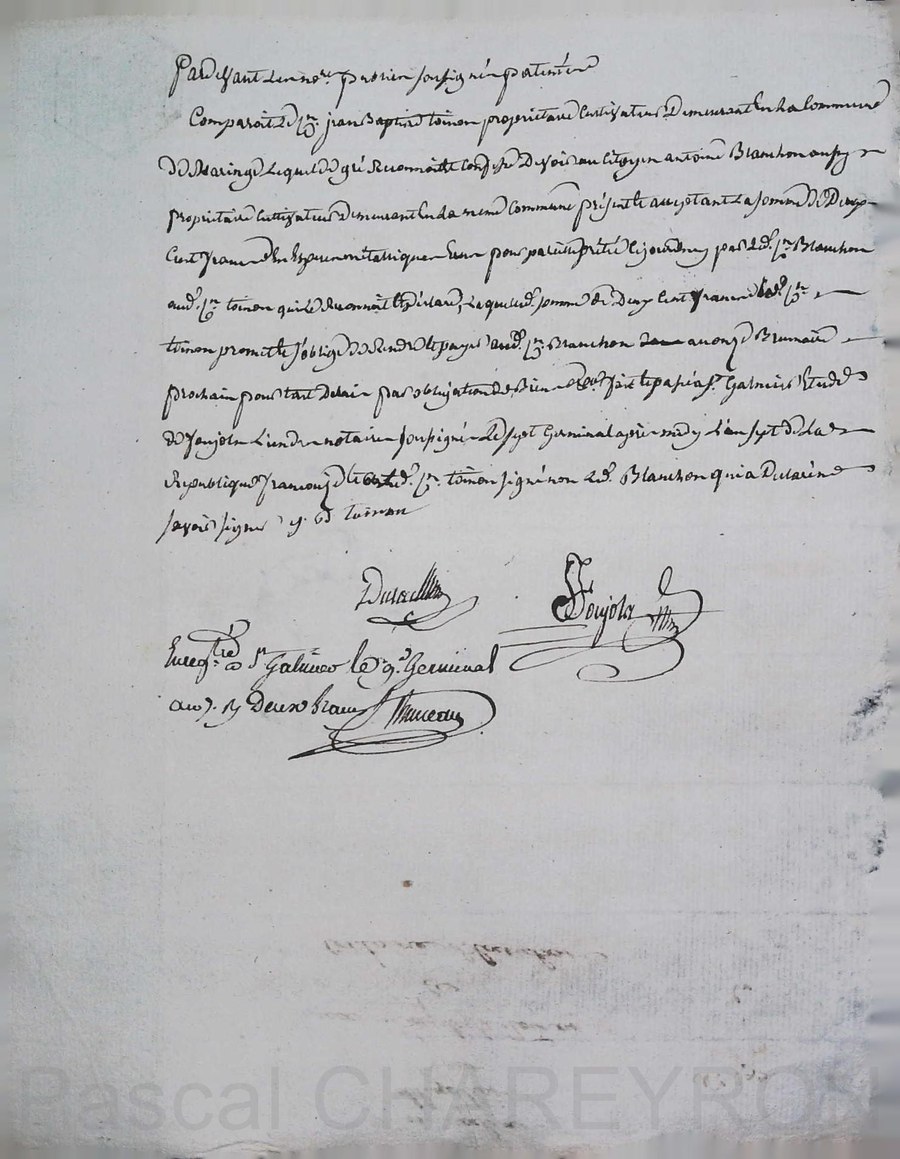 Pardevant Le no.re public soussigné patenté
Comparait Le C.en jean Baptiste toinon propriétaire Cultivateur Demeurant En La Commune
de Maringe Lequel de gré Reconnoit & Confesse Devoir au Citoyen antoine Blanchon aussy
propriétaire Cultivateur demeurant En La meme Commune présent & acceptant La somme de Deux
Cent francs En Espece metallique pour pareille prêtée par Led. C.en Blanchon
aud. C.en toinon qui Le Reconnoit & déclare, Laquelle d. somme de Deux Cent francs Led. C.en
toinon promet & s'oblige de Rendre & payer aud. C.en Blanchon au onze Brumaire
prochain pour tout Delai par obligation de Bien fait & passé a S.t Galmier Etude
de foujols L'un des notaires soussigné Le sept Germinal après midy L'an sept de La
Republique françoise & Led. C.en toinon signé non Led. Blanchon qui a Déclaré ne
savoir signer J. B toinon
foujols
Enregistré a S.t Galmier le 9.e Germinal
an 7. R Deux francs
Pascal CHAREYRON